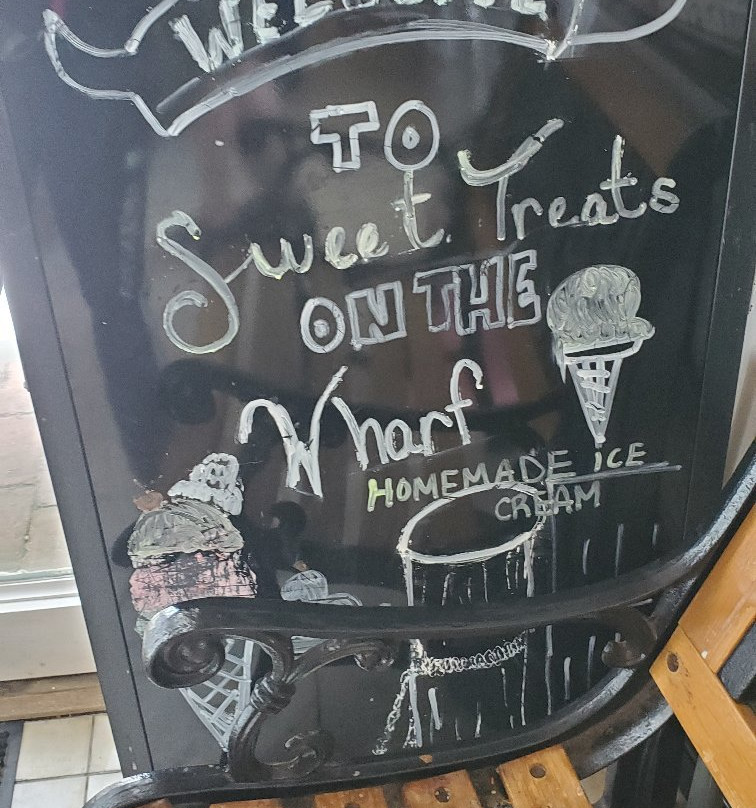 WELCOME
TO
Sweet Treats
ON THE
Wharf
HOMEMADE ICE
CREAM